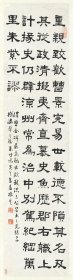 重親致歡曹景完易世載德不隕其名及
其從政清擬夷齊直慕史魚歷郡右職上
計掾史仍辟涼州常為治中別駕紀綱萬
里朱紫不謬